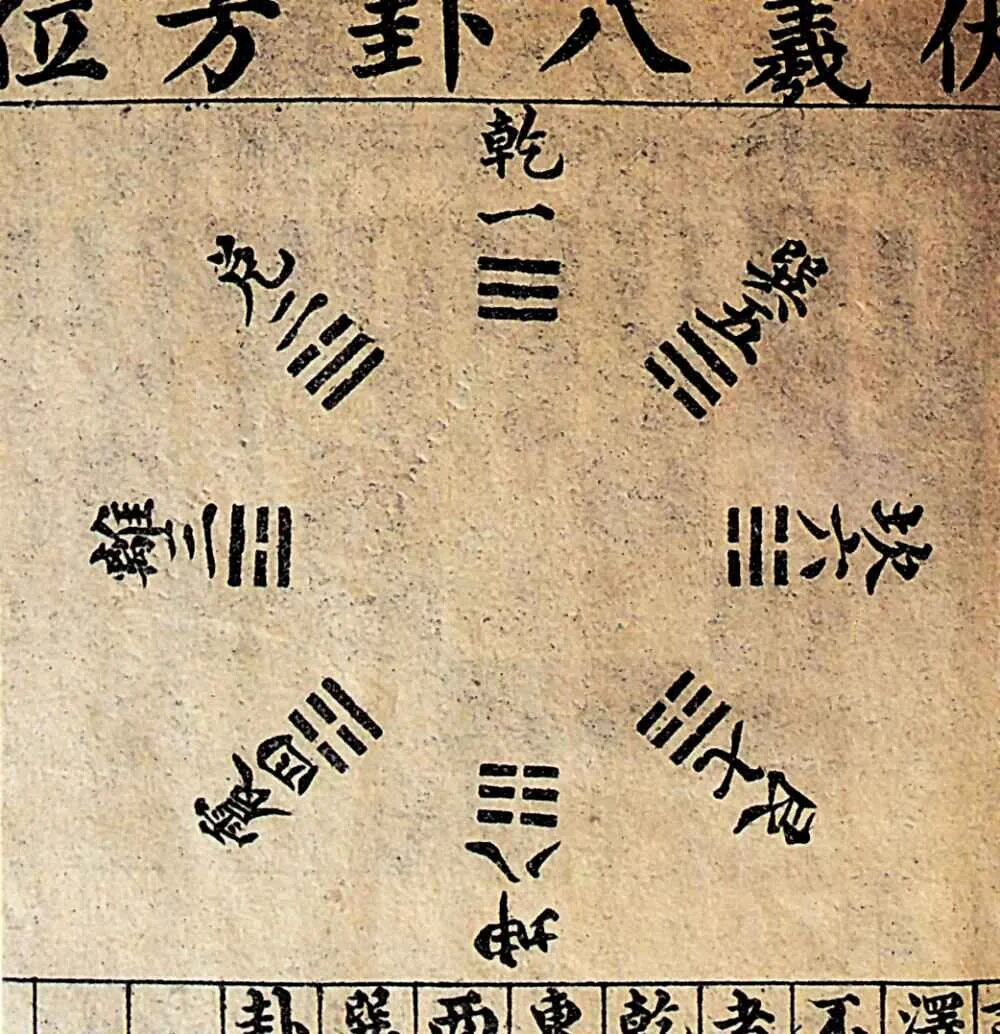 伏羲八卦方位
乾一
兌二
離三
震四
巽五
坎六
艮七
坤八
澤
乾
東
西
巽
卦